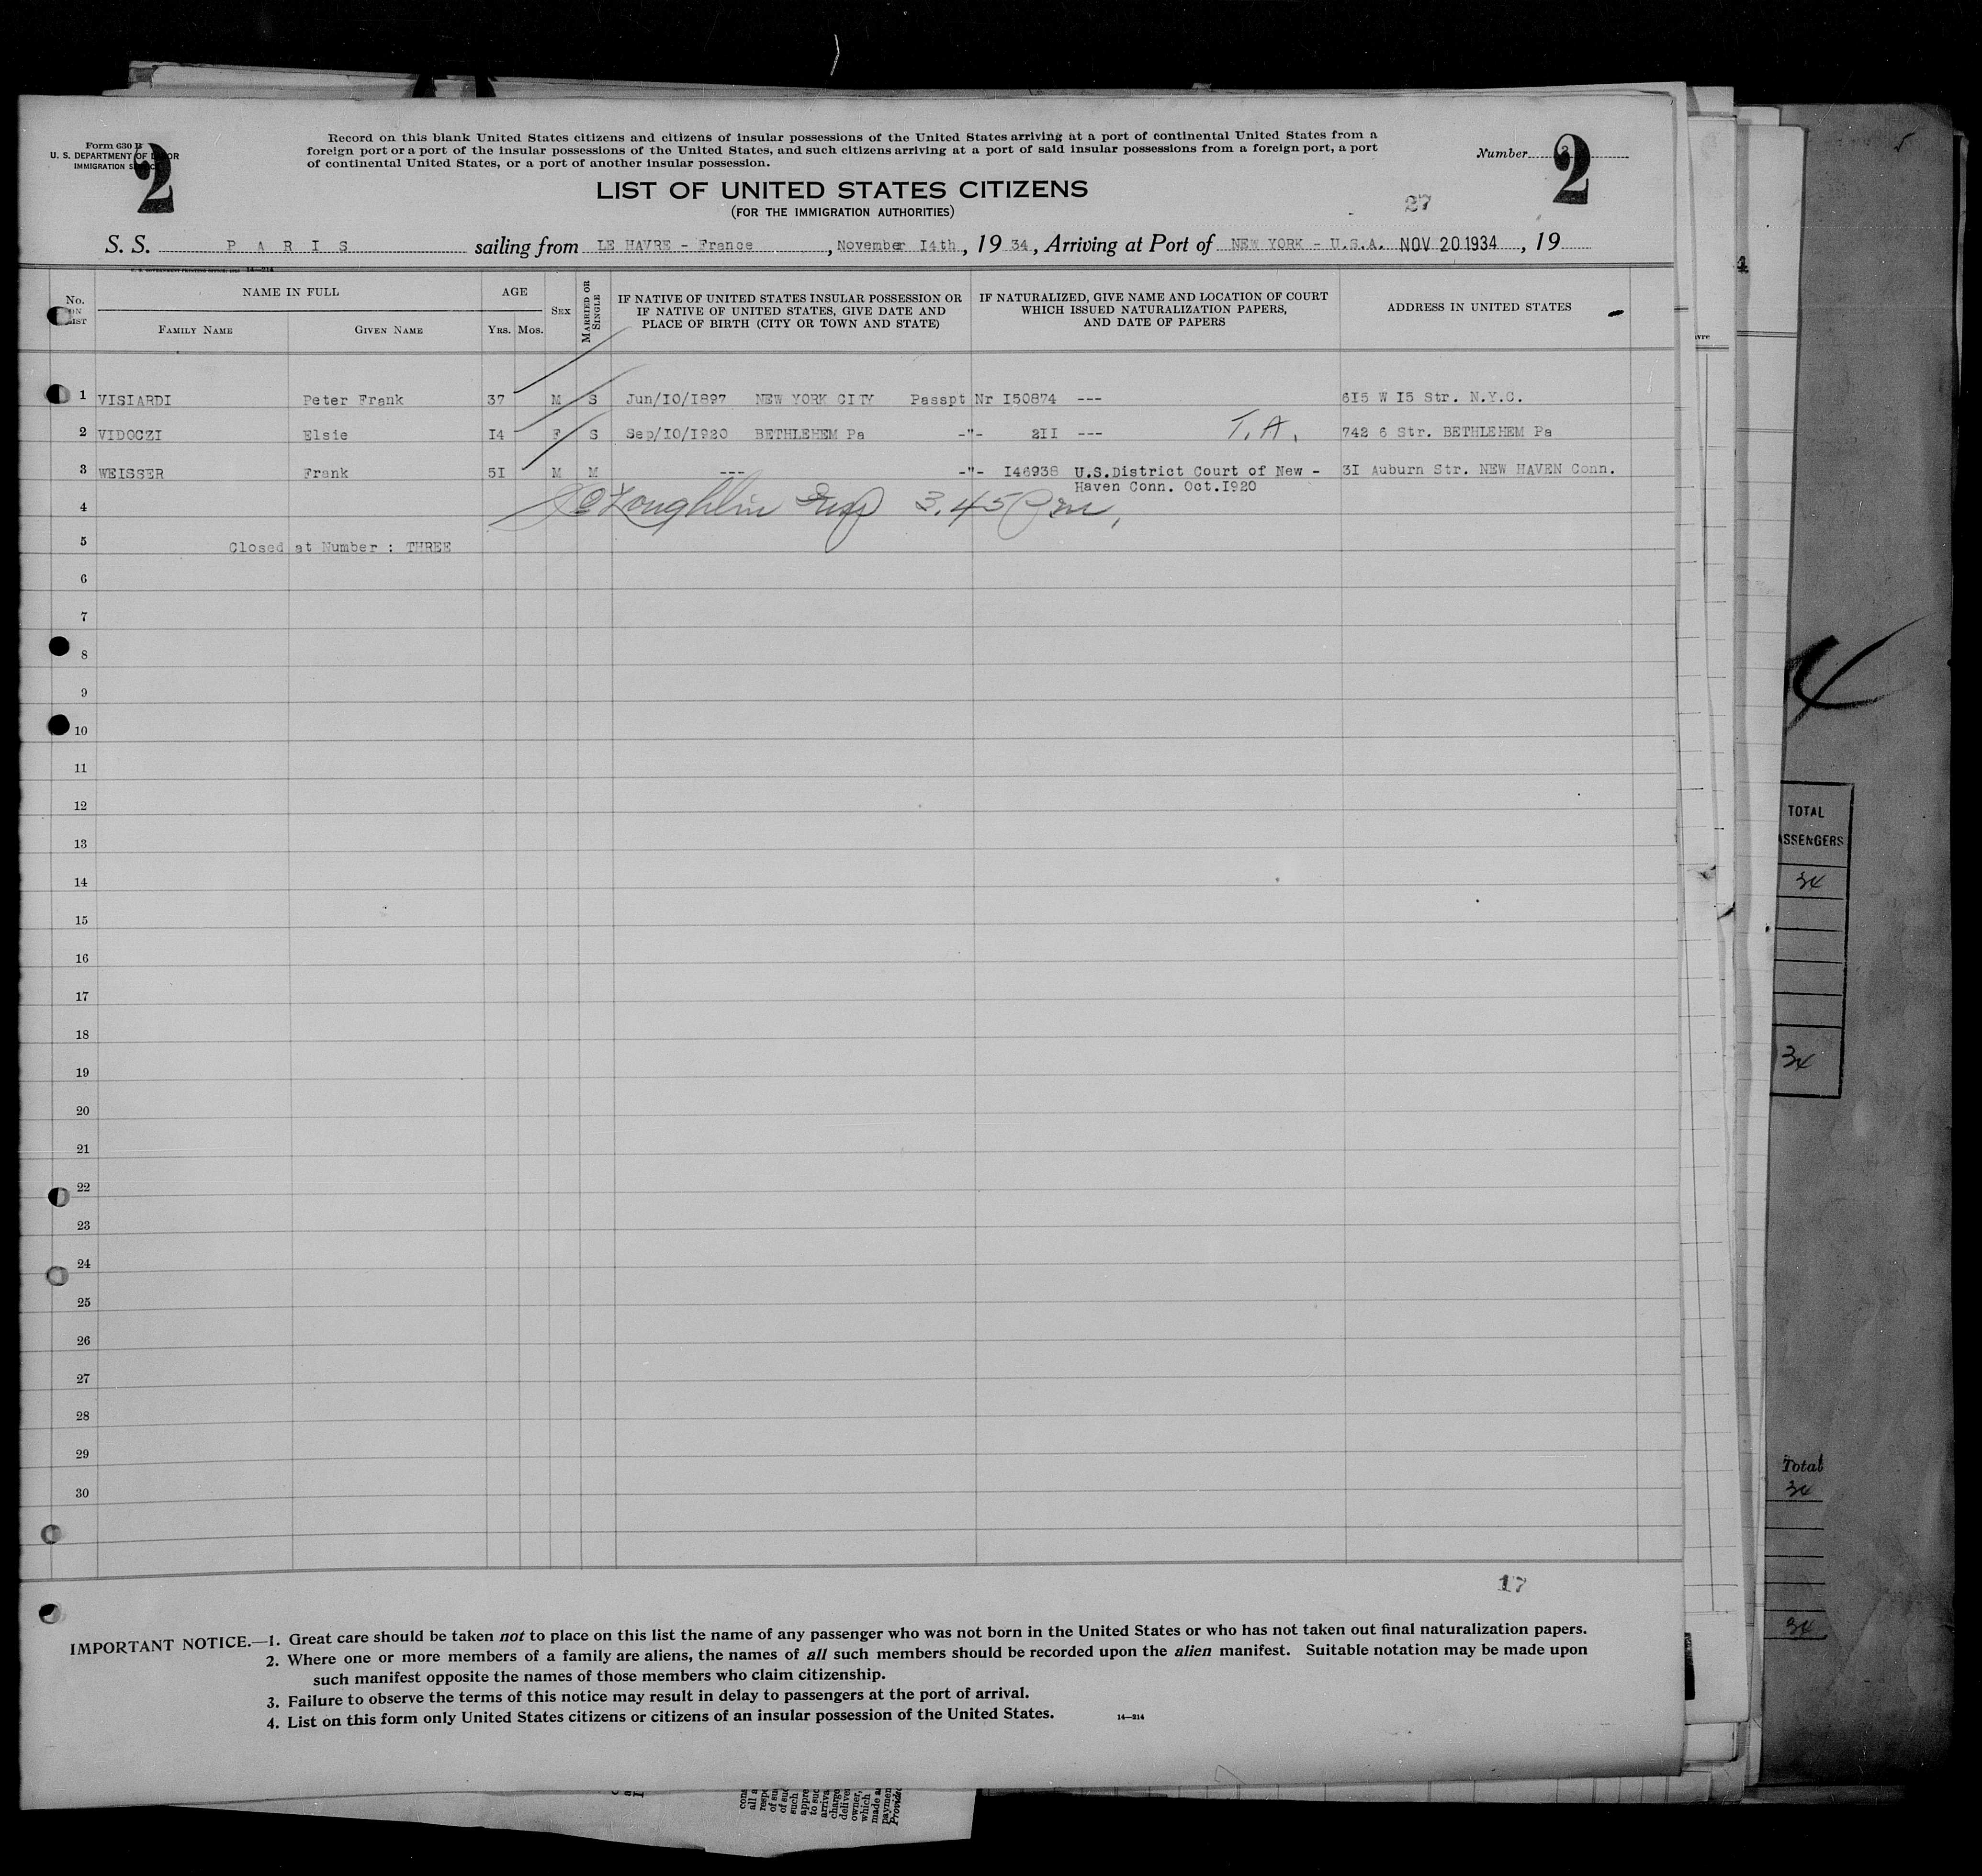 Record on this blank United States citizens and citizens of insular possessions of the United States arriving at a port of continental United States from a
foreign port or a port of the insular possessions of the United States, and such citizens arriving at a port of said insular possessions from a foreign port, a port
of continental United States, or a port of another insular possession.
Form 630 B
U. S. DEPARTMENT OF LABOR
IMMIGRATION
2
Number 2
2
LIST OF UNITED STATES CITIZENS
(FOR THE IMMIGRATION AUTHORITIES)
27
S. S. P A R I S sailing from LE HAVRE - France, November I4th, 19 34, Arriving at Port of NEW YORK - U.S.A. NOV 20 1934, 19
14-214
No. ON LIST
NAME IN FULL
FAMILY NAME
GIVEN NAME
AGE
YRS. MOS.
SEX
MARRIED OR SINGLE
IF NATIVE OF UNITED STATES INSULAR POSSESSION OR
IF NATIVE OF UNITED STATES, GIVE DATE AND
PLACE OF BIRTH (CITY OR TOWN AND STATE)
IF NATURALIZED, GIVE NAME AND LOCATION OF COURT
WHICH ISSUED NATURALIZATION PAPERS,
AND DATE OF PAPERS
ADDRESS IN UNITED STATES
1 VISIARDI Peter Frank 37 M S Jun/IO/I897 NEW YORK CITY Passpt Nr I50874 --- 6I5 W I5 Str. N.Y.C.
2 VIDOCZI Elsie I4 F S Sep/IO/I920 BETHLEHEM Pa -"- 2II --- T.A. 742 6 Str. BETHLEHEM Pa
3 WEISSER Frank 5I M M --- -"- I46938 U.S.District Court of New - 3I Auburn Str. NEW HAVEN Conn.
Haven Conn. Oct.I920
4 3.45 Pm.
5 Closed at Number : THREE
6
7
8
9
10
11
12
13
14
15
16
17
18
19
20
21
22
23
24
25
26
27
28
29
30
17
IMPORTANT NOTICE.—1. Great care should be taken not to place on this list the name of any passenger who was not born in the United States or who has not taken out final naturalization papers.
2. Where one or more members of a family are aliens, the names of all such members should be recorded upon the alien manifest. Suitable notation may be made upon
such manifest opposite the names of those members who claim citizenship.
3. Failure to observe the terms of this notice may result in delay to passengers at the port of arrival.
4. List on this form only United States citizens or citizens of an insular possession of the United States.
14-214
4
TOTAL
SSENGERS
34
34
Total
34
34